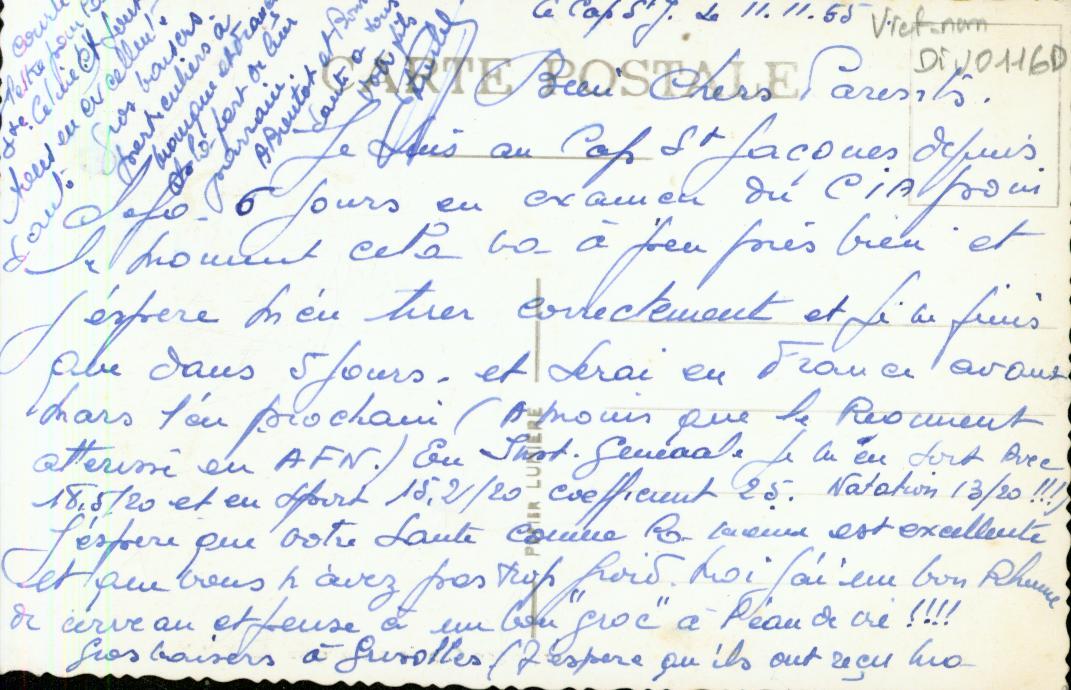 Le Cap St J. Le 11.11.55
Viet-nam
DiV0116D
CARTE POSTALE
Bien Chers Parents.
Je suis au Cap St Jacques depuis
6 Jours en examen du CIA pour
le moment cela va à peu près bien et
j'éspere m'en tirer correctement et je ne finis
que dans 5 jours. et serai en France avant
Mars l'én prochain (A moins que le Regiment
atterisse en AFN.) En Inst. Generale je m'en sort avec
18,5/20 et en sport 15,21/20 coefficient 25. Natation 13/20 !!!)
J'éspere que votre santé comme la mienne est excellente
et que vous n'avez pas trop froid. Moi j'ai un bon Rhume
de cerveau et pense à un bon "groc" à l'éau de vie !!!!
Gros baisers à Grisolles (J'éspere qu'ils ont reçu ma
courte
lettre pour
Ste Cécile et sont
tous en excellente
santé
Gros baisers
particuliers à
parrain
A Bientot et Bonne
Santé à tous
votre fils
PHOTO LUMIERE